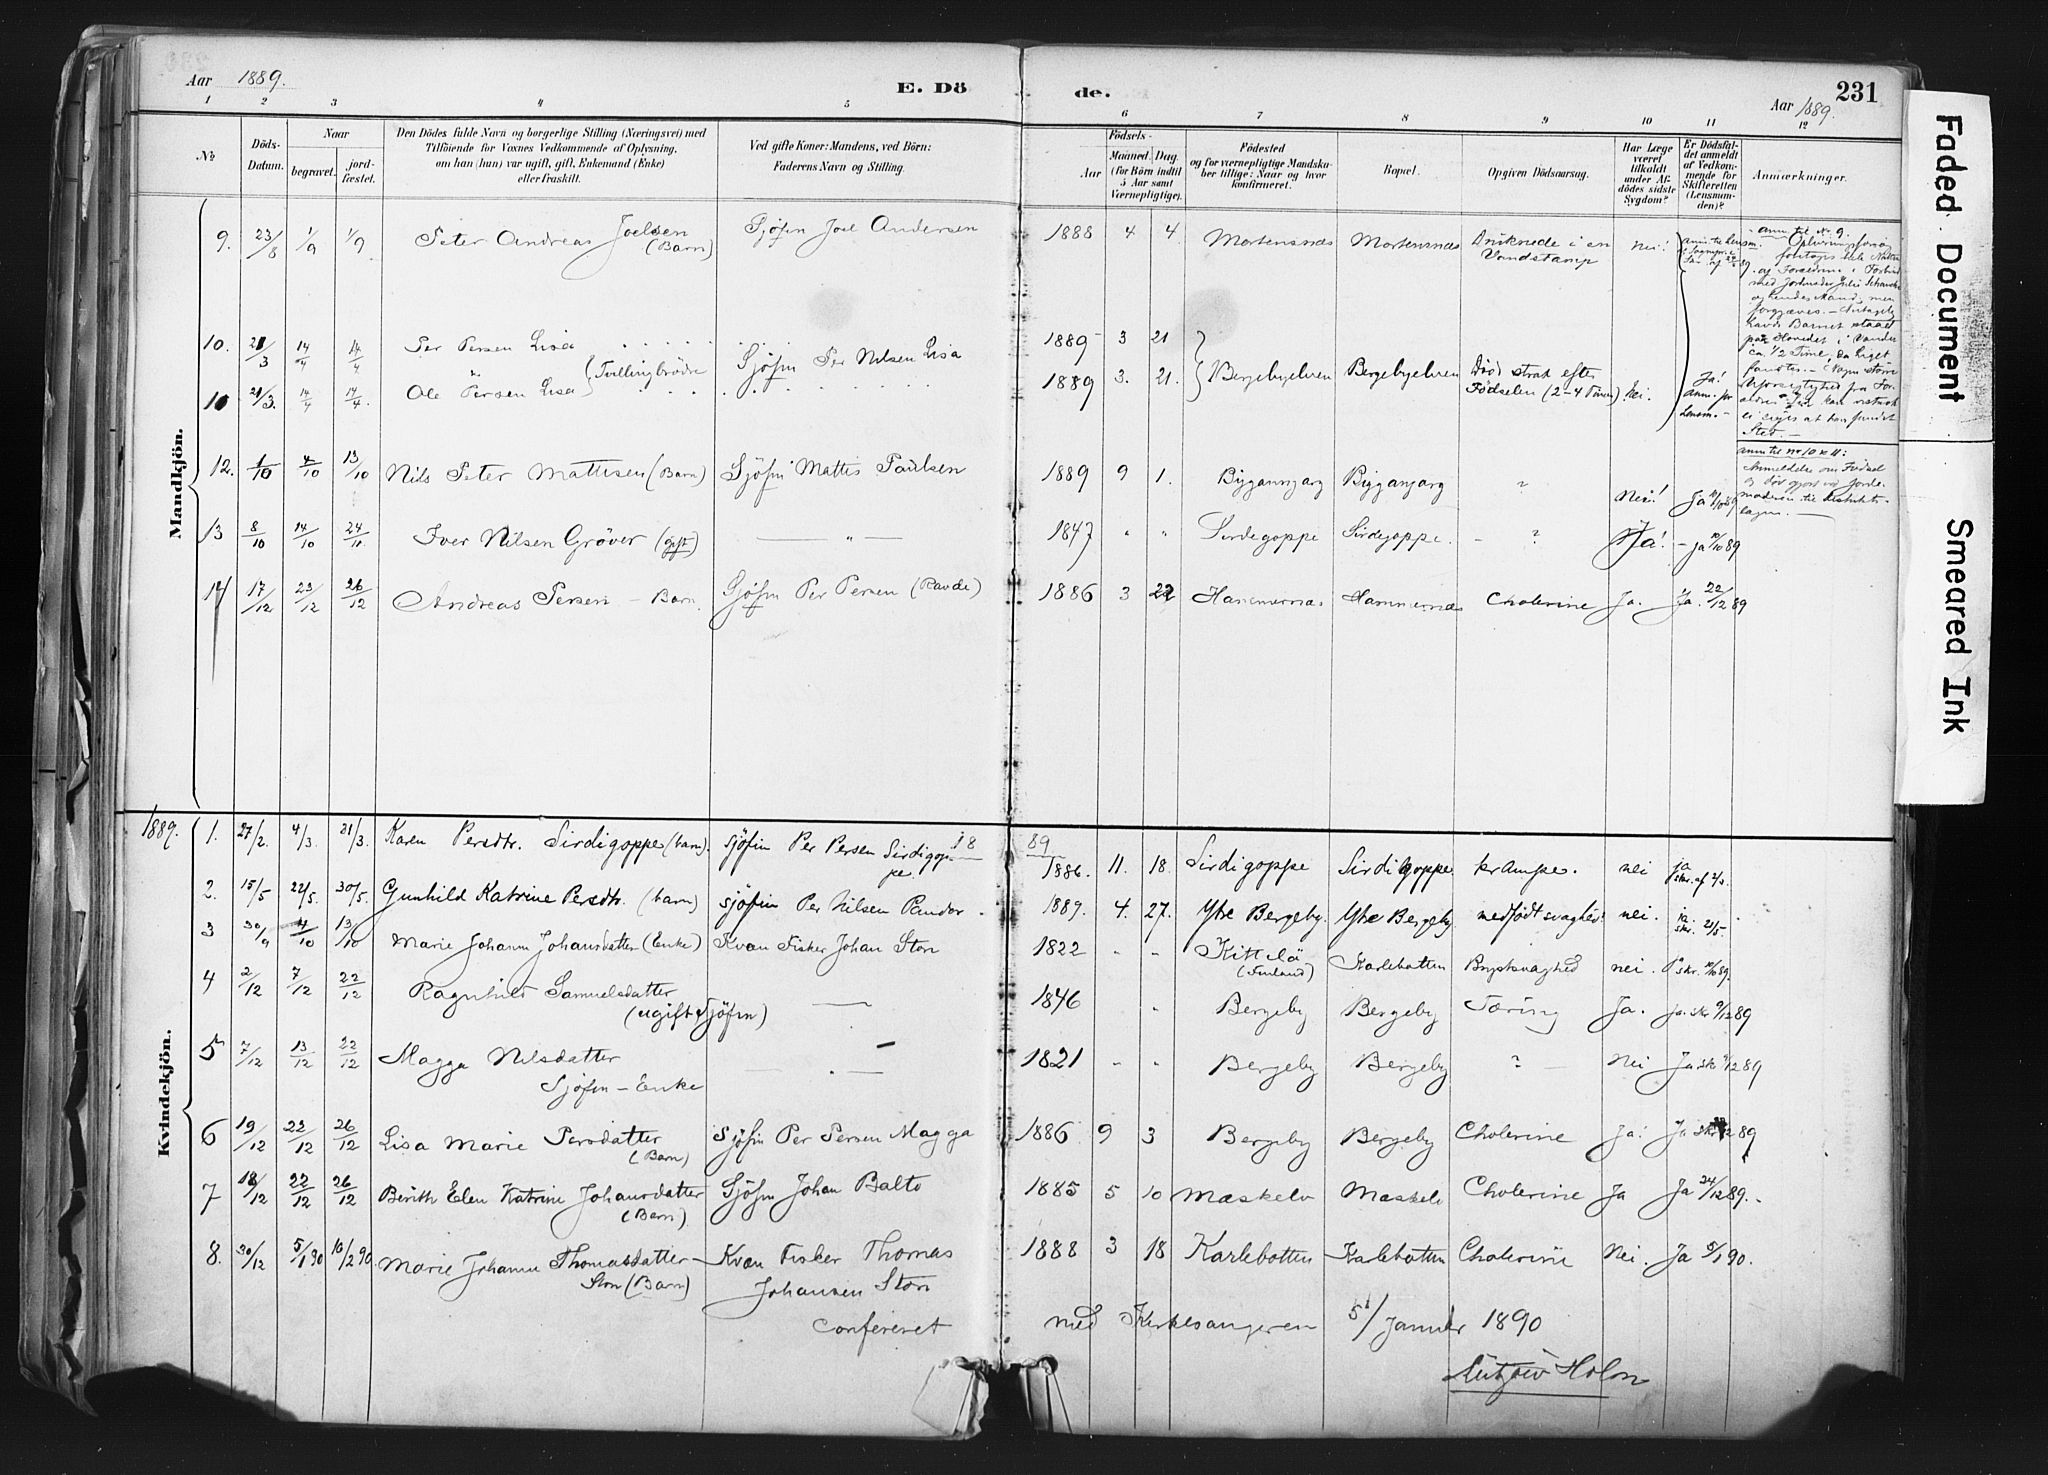 Aar 1889.
E. Dö
de.
231
Aar 1889.
1 2 3 4 5 6 7 8 9 10 11 12
No
Döds-Datum.
Naar
begravet.
jord-fæstet.
Den Dödes fulde Navn og borgerlige Stilling (Næringsvei) med
Tilföiende for Voxnes Vedkommende af Oplysning,
om han (hun) var ugift, gift, Enkemand (Enke)
eller fraskilt.
Ved gifte Koner: Mandens, ved Börn:
Faderens Navn og Stilling.
Födsels-
Aar
Maaned. Dag.
(for Börn indtil
5 Aar samt
Værnepligtige).
Födested
og for værnepligtige Mandska-
ber tillige: Naar og hvor
konfirmeret.
Bopæl.
Opgiven Dödsaarsag.
Har Læge
været
tilkaldt
under Af-
dödes sidste
Sygdom?
Er Dödsfal-
det anmeldt
af Vedkom-
mende for
Skifteretten
(Lensman-
den)?
Anmærkninger.
Mandkjön.
9. 23/8 1/9 1/9 Peter Andreas Joelsen (Barn) Sjöfin Joel Andersen 1888 4 4. Mortensnæs Mortensnæs Druknede i en Vandstamp Nei!
anm. til No 9.
10. 21/3 14/4 14/4 Per Persen Lisa (Tvillingbrödre Sjöfin Per Nilsen Lisa 1889 3 21
11 21/3. 14/4 14/4. Ole Persen Lisa 1889 3. 21. Bergebyelven Bergebyelven Död strax efter Födselen (2-4 Timer) Nei. Ja! Anm. for Lensm.
12. 1/10 4/10 13/10 Nils Peter Mattisen (Barn) Sjöfin Mattis Paulsen 1889 9 1. Byggannjarg Bigganjarg ? Nei! Ja
anm til No 10 & 11:
Anmeldelse om Födsel
13 8/10 14/10 24/11. Iver Nilsen Gröver (gift) — " — 1847 " " Sirdegoppe Sirdegoppe. - ? Ja! - ja 10/10 89
14 17/12 23/12 26/12 Andreas Persen - Barn. Sjöfin Per Persen (Ravde) 1886 3 22 Hammernæs Hammernæs Cholerine Ja. Ja. 22/12 89
Kvindekjön.
1889. 18 89
1. 27/2. 4/3. 31/3. Karen Persdtr. Sirdigoppe (barn). sjöfin Per Persen Sirdigoppe 1886. 11. 18. Sirdigoppe Sirdigoppe krampe. nei ja skr. af 2/3.
2. 15/5 22/5. 30/5. Gunhild Katrine Persdtr. (barn) sjöfin Per Nilsen Pandor. 1889. 4. 27. Ytre Bergeby. Ytre Bergeby. medfödt svaghed. nei. ja skr. 21/5.
3 30/9 4/10 13/10 Marie Johanne Johansdatter (Enke) Kvæn Fisker Johan Ston 1822 " " Kittilä (Finland) Karlebotten Brystsvaghed nei. skr. 10/10 89.
4 2/12 7/12 22/12 Ragnhild Samuelsdatter (ugift Sjöfin) — 1846 " Bergeby Bergeby Tæring Ja. ja. skr 9/12 89
5 7/12 13/12 22/12 Magga Nilsdatter Sjöfin - Enke — " — 1821 " " Bergeby Bergeby ? Nei Ja skr 9/12 89
6 19/12 22/12 26/12 Lisa Marie Persdatter (Barn) Sjöfin Per Persen Magga 1886 9 3 Bergeby Bergeby Cholerine Ja! Ja skr 12 89
7 18/12 22/12 26/12 Berith Elen Katrine Johansdatter (Barn) Sjöfin Johan Balto 1885 5 10 Mæskelv Mæskelv Cholerine Ja Ja 24/12 89.
8. 30/12 5/1 90 16/2 90. Marie Johanne Thomasdatter Ston (Barn) Kvæn Fisker Thomas Johansen Ston 1888 3 18 Karlebotten Karlebotten Cholerine Nei. Ja 5/1 90.
Confereret med Kirkesangeren 5/ Januar 1890
Lützow Holm
Faded Document
Smeared Ink